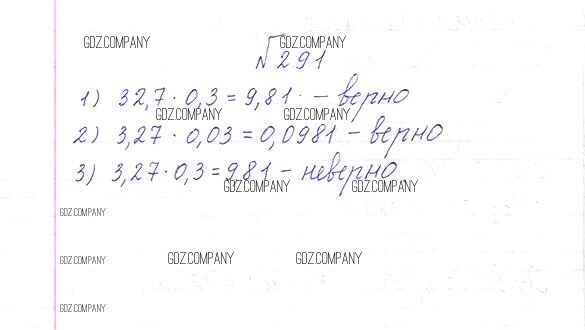 GDZ.COMPANY GDZ.COMPANY
№291
1) 32,7 · 0,3 = 9,81 - верно
GDZ.COMPANY GDZ.COMPANY
2) 3,27 · 0,03 = 0,0981 - верно
3) 3,27 · 0,3 = 981 - неверно
GDZ.COMPANY GDZ.COMPANY
GDZ.COMPANY
GDZ.COMPANY GDZ.COMPANY GDZ.COMPANY
GDZ.COMPANY